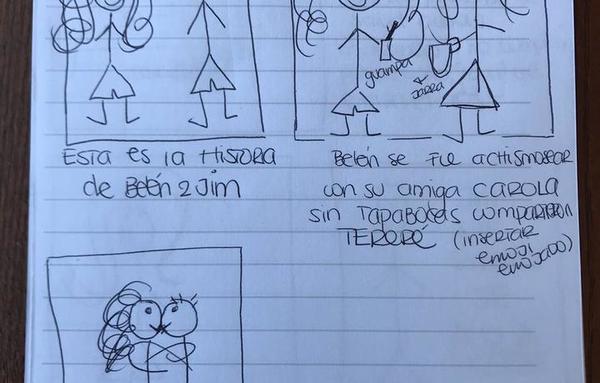 guampa
&
Jarra
Esta es la Historia
de Belén 2 Jim
Belén se fue a chismosear
con su amiga CAROLA
sin TAPABOCAS compartieron
TERERÉ (insertar
emoji
emojado)